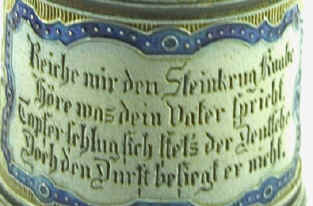 Reiche mir den Steinkrug Knabe
Höre was dein Vater spricht
Tapfer schlug sich stets der Deutsche
Doch den Durst besiegt er nicht.